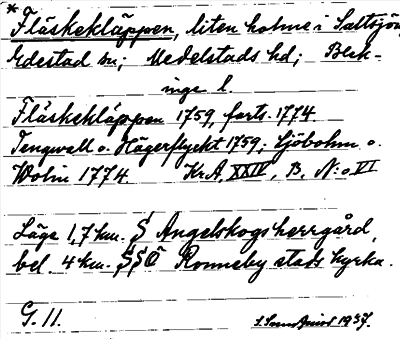 * Fläskekläppen, liten holme i Saltsjön,
Edestad sn; Medelstads hd; Blek-
inge l.
Fläskekläppen 1759, forts. 1774
Tengwall o. Hägerflyckt 1759; Sjöbohm o.
Wolin 1774. Kr.A, XXIV, B, N:o VI
Läge 1,7 km. S Angelskogs herrgård,
bel. 4 km. SSO Ronneby stads kyrka.
G. 11. 1937.